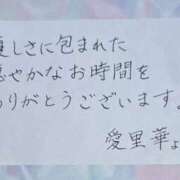 優しさに包まれた
穏やかなお時間を
ありがとうございます。
愛里華より